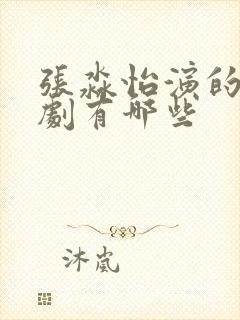 張淼怡演的
劇有哪些
沐嵐